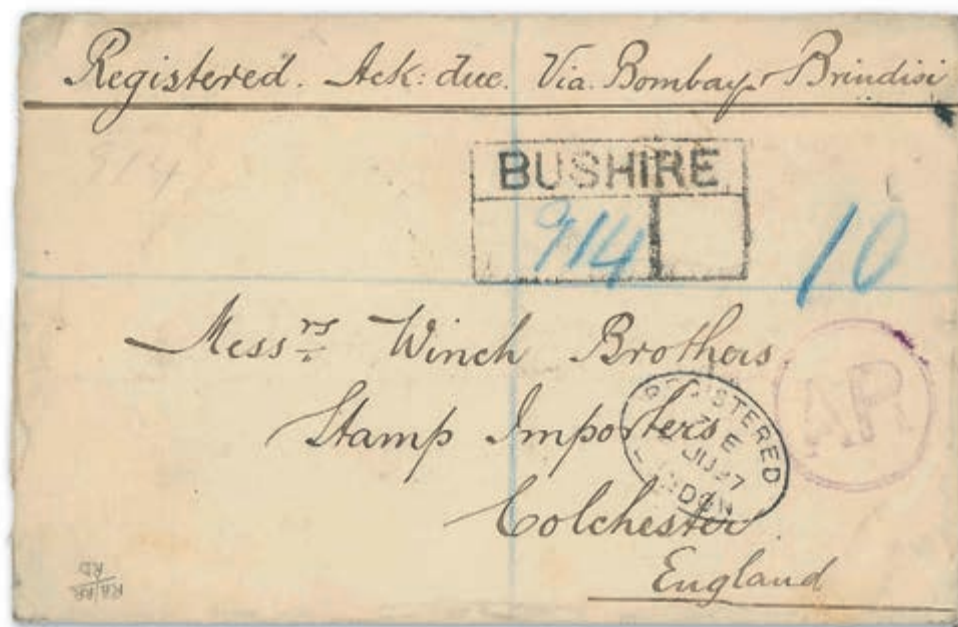 Registered. Ack: due. Via. Bombay & Brindisi
914
BUSHIRE
914
10
Messrs Winch Brothers
Stamp Importers
Colchester
England
AR
REGISTERED
JU 27